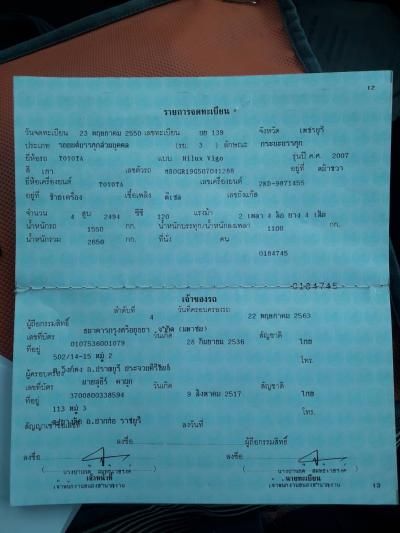 12
รายการจดทะเบียน
วันจดทะเบียน 23 พฤษภาคม 2550 เลขทะเบียน 139 จังหวัด เพชรบุรี
ประเภท รถยนต์บรรทุกส่วนบุคคล (รย. 3 ) ลักษณะ กระบะบรรทุก
ยี่ห้อรถ TOYOTA แบบ Hilux Vigo รุ่นปี ค.ศ. 2007
สี เทา เลขตัวรถ อยู่ที่
ยี่ห้อเครื่องยนต์ TOYOTA เลขเครื่องยนต์ 2KD-9871455
อยู่ที่ เครื่อง เชื้อเพลิง ดีเซล เลขถังแก๊ส
จำนวน 4 สูบ 2494 ซีซี 120 แรงม้า 2 เพลา 4 ล้อ ยาง 4 เส้น
น้ำหนักรถ 1550 กก. น้ำหนักบรรทุก/น้ำหนักลงเพลา 1100 กก.
น้ำหนักรวม 2650 กก. ที่นั่ง คน
0184745
0184745
เจ้าของรถ
ลำดับที่ 4 วันที่ครอบครองรถ 22 พฤษภาคม 2563
ผู้ถือกรรมสิทธิ์ ธนาคารกรุงศรีอยุธยา จำกัด (มหาชน)
เลขที่บัตร 0107536001079 วันเกิด 28 กันยายน 2536 สัญชาติ ไทย
ที่อยู่ 502/14-15 หมู่ 2 โทร.
ผู้ครอบครอง
เลขที่บัตร 3700800338594 วันเกิด 9 สิงหาคม 2517 สัญชาติ ไทย
ที่อยู่ 113 หมู่ 3 โทร.
อ.ปากท่อ ราชบุรี
ลงวันที่
ลงชื่อ ผู้ถือกรรมสิทธิ์
ลงชื่อ ลงชื่อ
เจ้าหน้าที่ นายทะเบียน
13